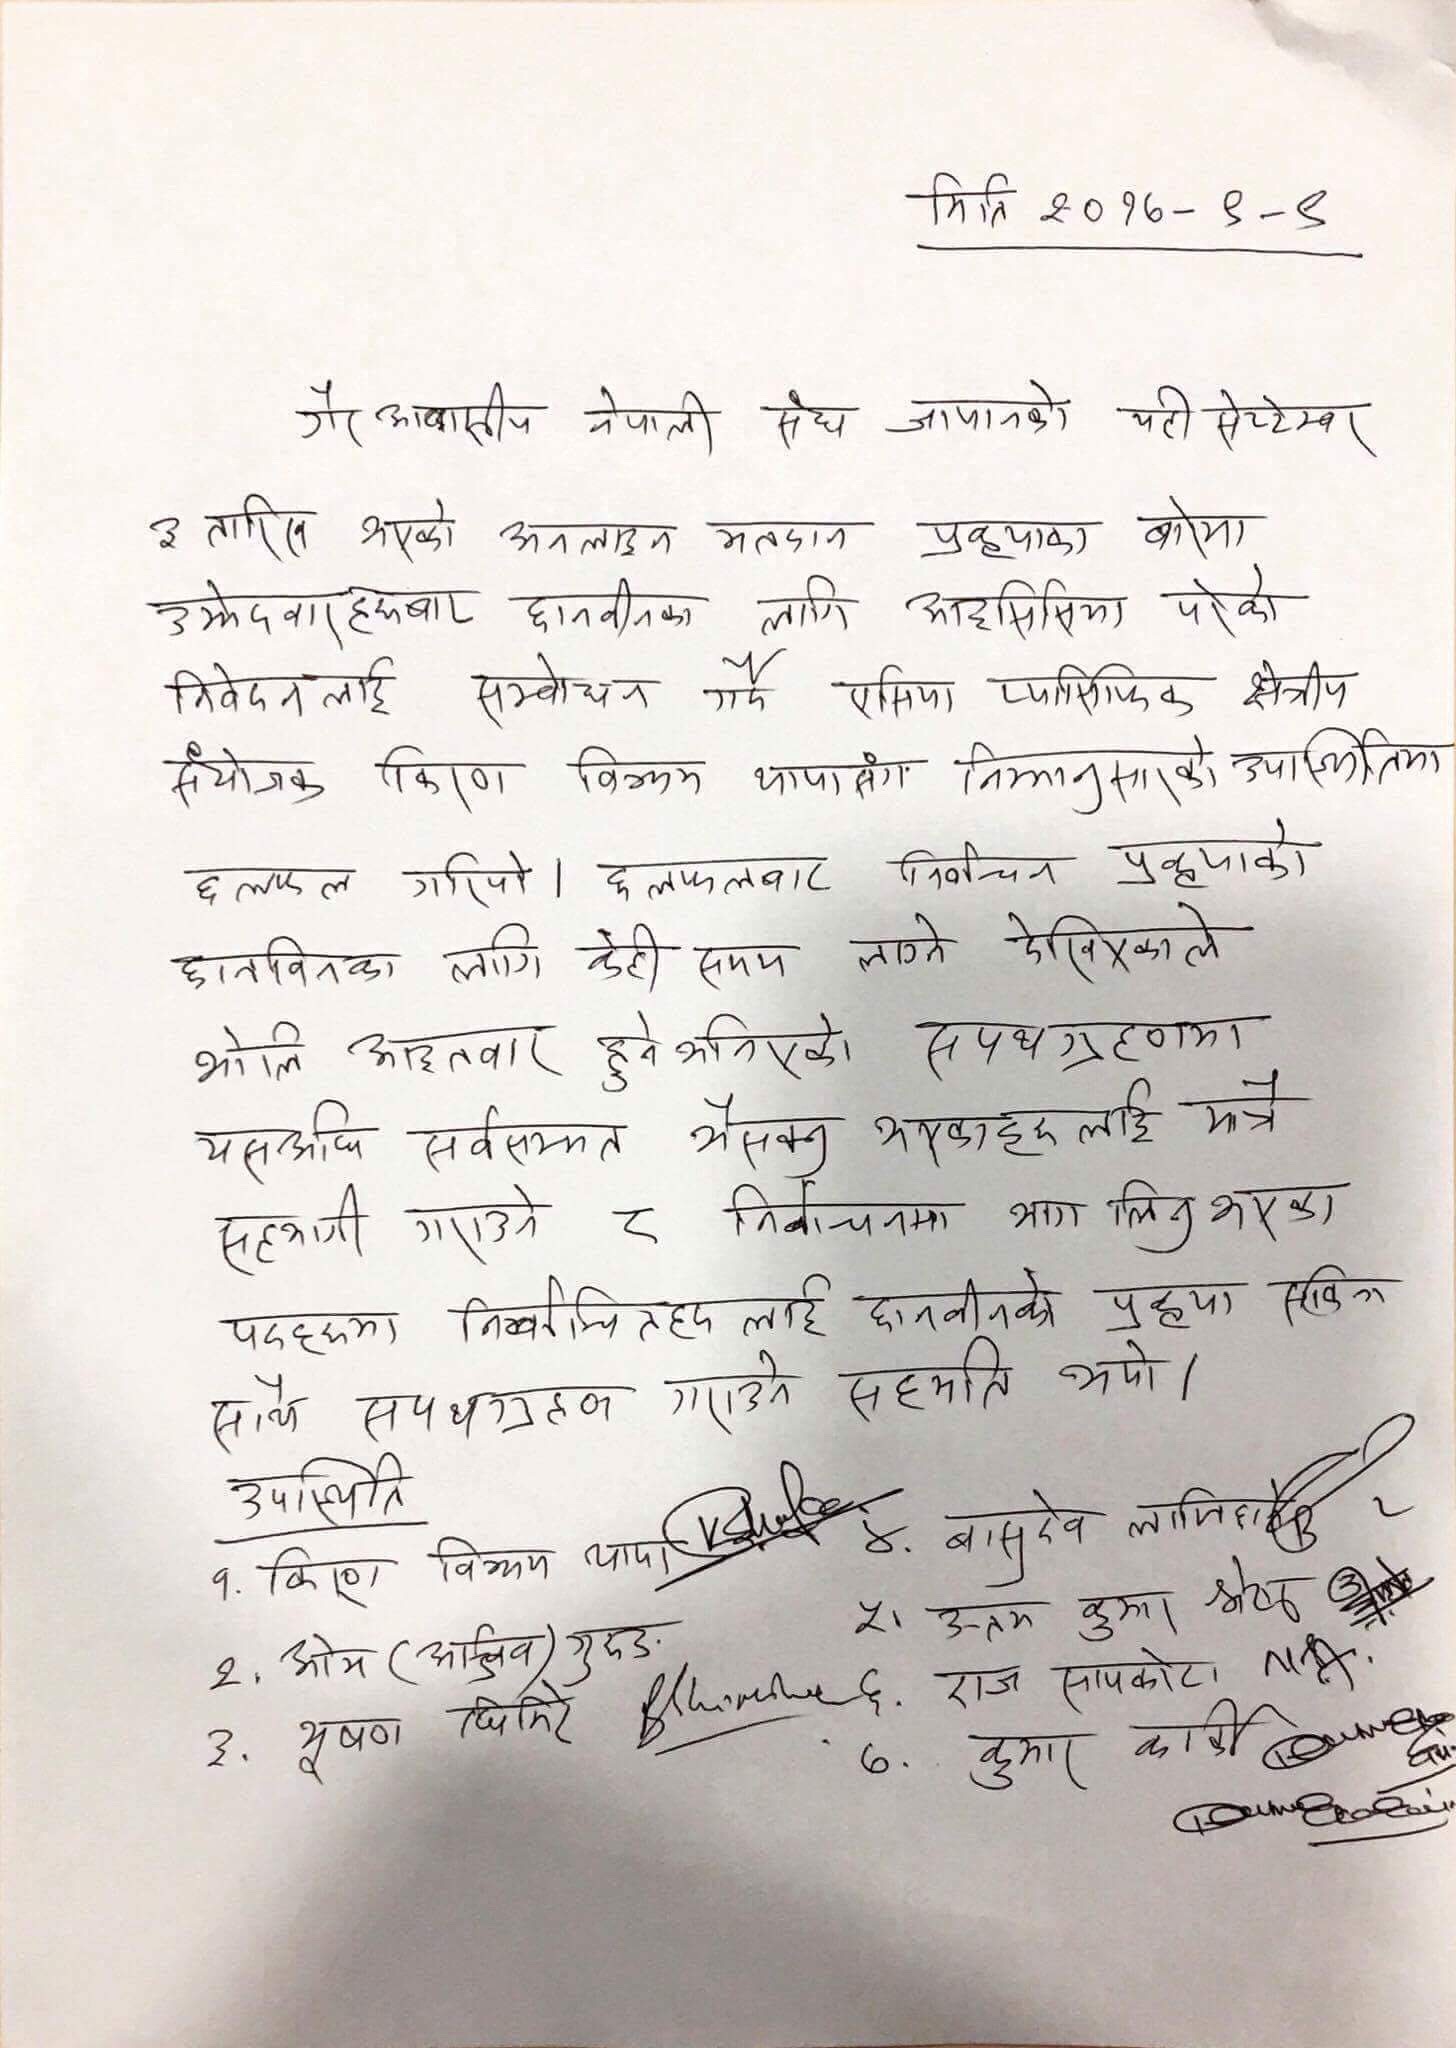 मिति २०१७-९-९
गैर आवासीय नेपाली संघ जापानको यही सेप्टेम्बर
३ तारिख भएको अनलाइन मतदान प्रकृयाका बारेमा
उम्मेदवारहरुबाट छानवीनका लागि आइसिसिमा परेको
निवेदनलाई सम्बोधन गर्दै एसिया प्यासिफिक क्षेत्रीय
संयोजक किरण विक्रम थापासंग निम्नानुसारको उपस्थितिमा
छलफल गरियो। छलफलबाट निर्वाचन प्रकृयाको
छानविनका लागि केही समय लाग्ने देखिएकाले
भोलि आइतवार हुने भनिएको सपथग्रहणमा
यसअघि सर्वसम्मत भैसक्नु भएकाहरुलाई मात्रै
सहभागी गराउने र निर्वाचनमा भाग लिनु भएका
पदहरुमा निर्वाचितहरुलाई छानवीनको प्रकृया सकिए
साथै सपथग्रहण गराउने सहमति भयो।
उपस्थिति
१. किरण विक्रम थापा
२. ओम (आश्विव) गुरुङ
३. भूषण घिमिरे
४. बासुदेव लामिछाने
५. उत्तम कुमार श्रेष्ठ
६. राज सापकोटा
७. कुमार कार्की